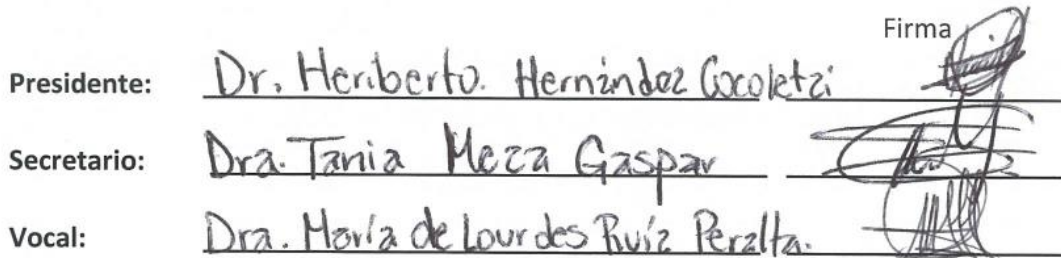 Firma
Presidente: Dr. Heriberto. Hernández Cocoletzi
Secretario: Dra. Tania Meza Gaspar
Vocal: Dra. María de Lourdes Ruíz Peralta.